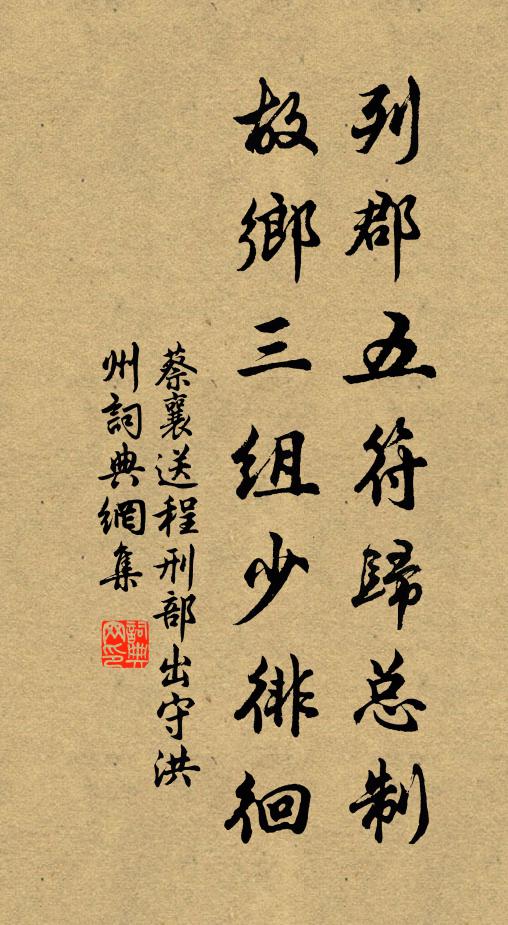 列郡五符歸总制
故鄉三組少徘徊
蔡襄送程刑部出守洪
州詞典網集
詞典網印